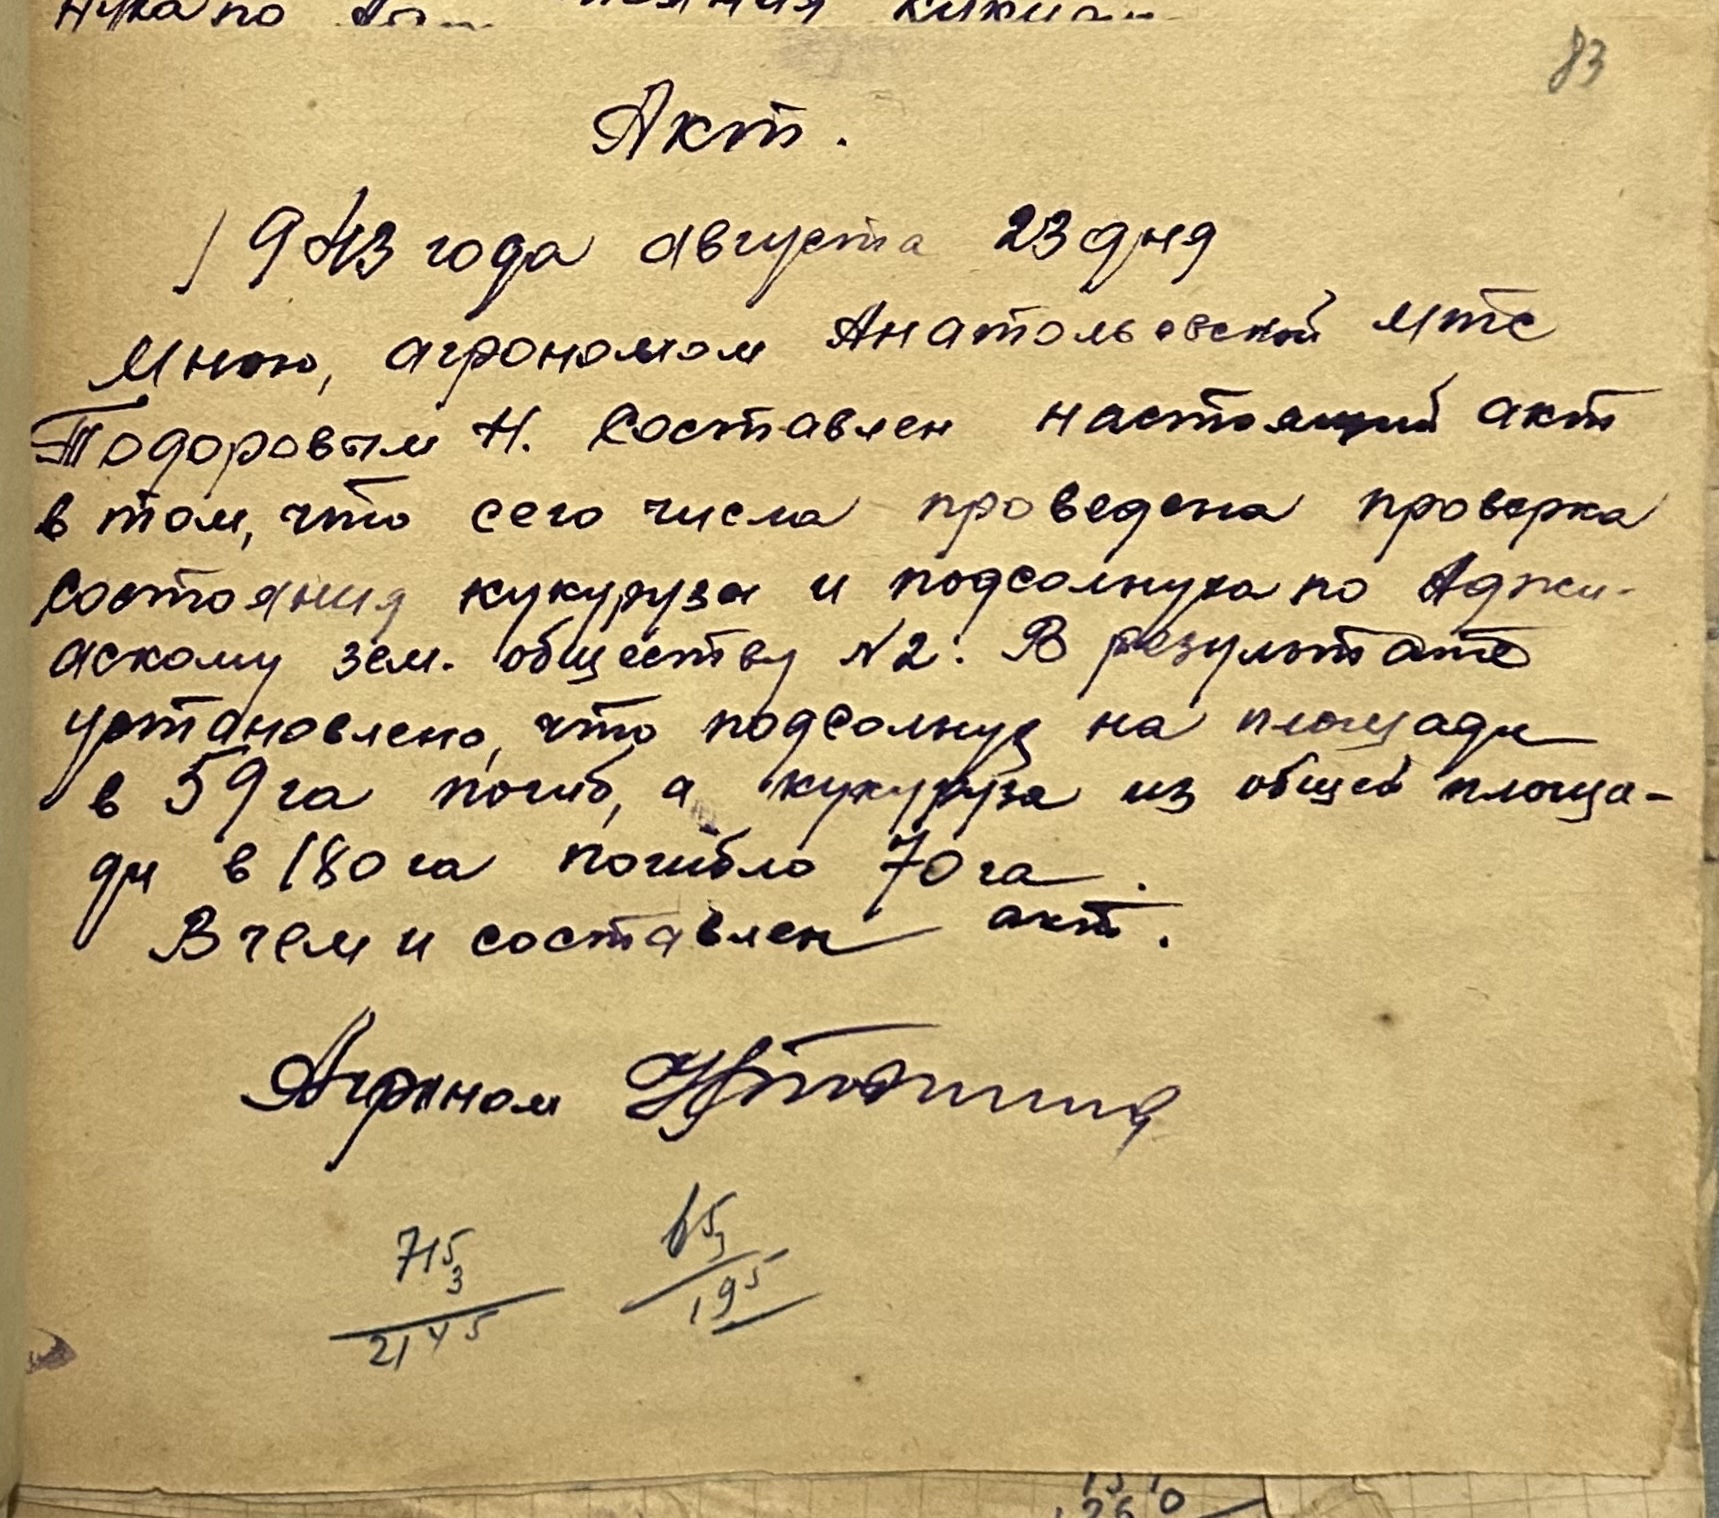 нуха по
83
Акт.
1943 года августа 23 дня
Мною, агрономом Анатольевской МТС
Тодоровым Н. Составлен настоящий акт
в том, что сего числа проведена проверка
состояния кукуруза и подсолнуха по Аджи-
аскому зем. обществу №2. В результате
установлено, что подсолнух на площади
в 59 га погиб, а кукуруза из общей площа-
ди в 180 га погибло 70 га.
В чем и составлен акт.
Агроном
715 65
3 3
2145 195